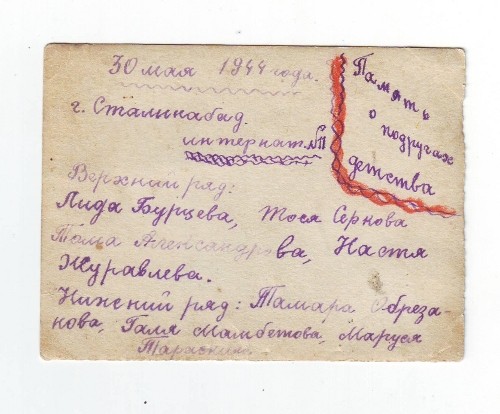 30 мая 1944 года.
г. Сталинабад.
интернат №11
Память
о подругах
детства
Верхний ряд:
Лида Бурцева, Тося Сернова
Тома Александрова, Настя
Журавлева.
Нижний ряд: Тамара Обреза-
нова, Галя Мамбетова, Маруся